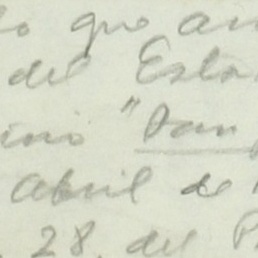 lo que an
del Esta
ino "San
Abril de
28, del P